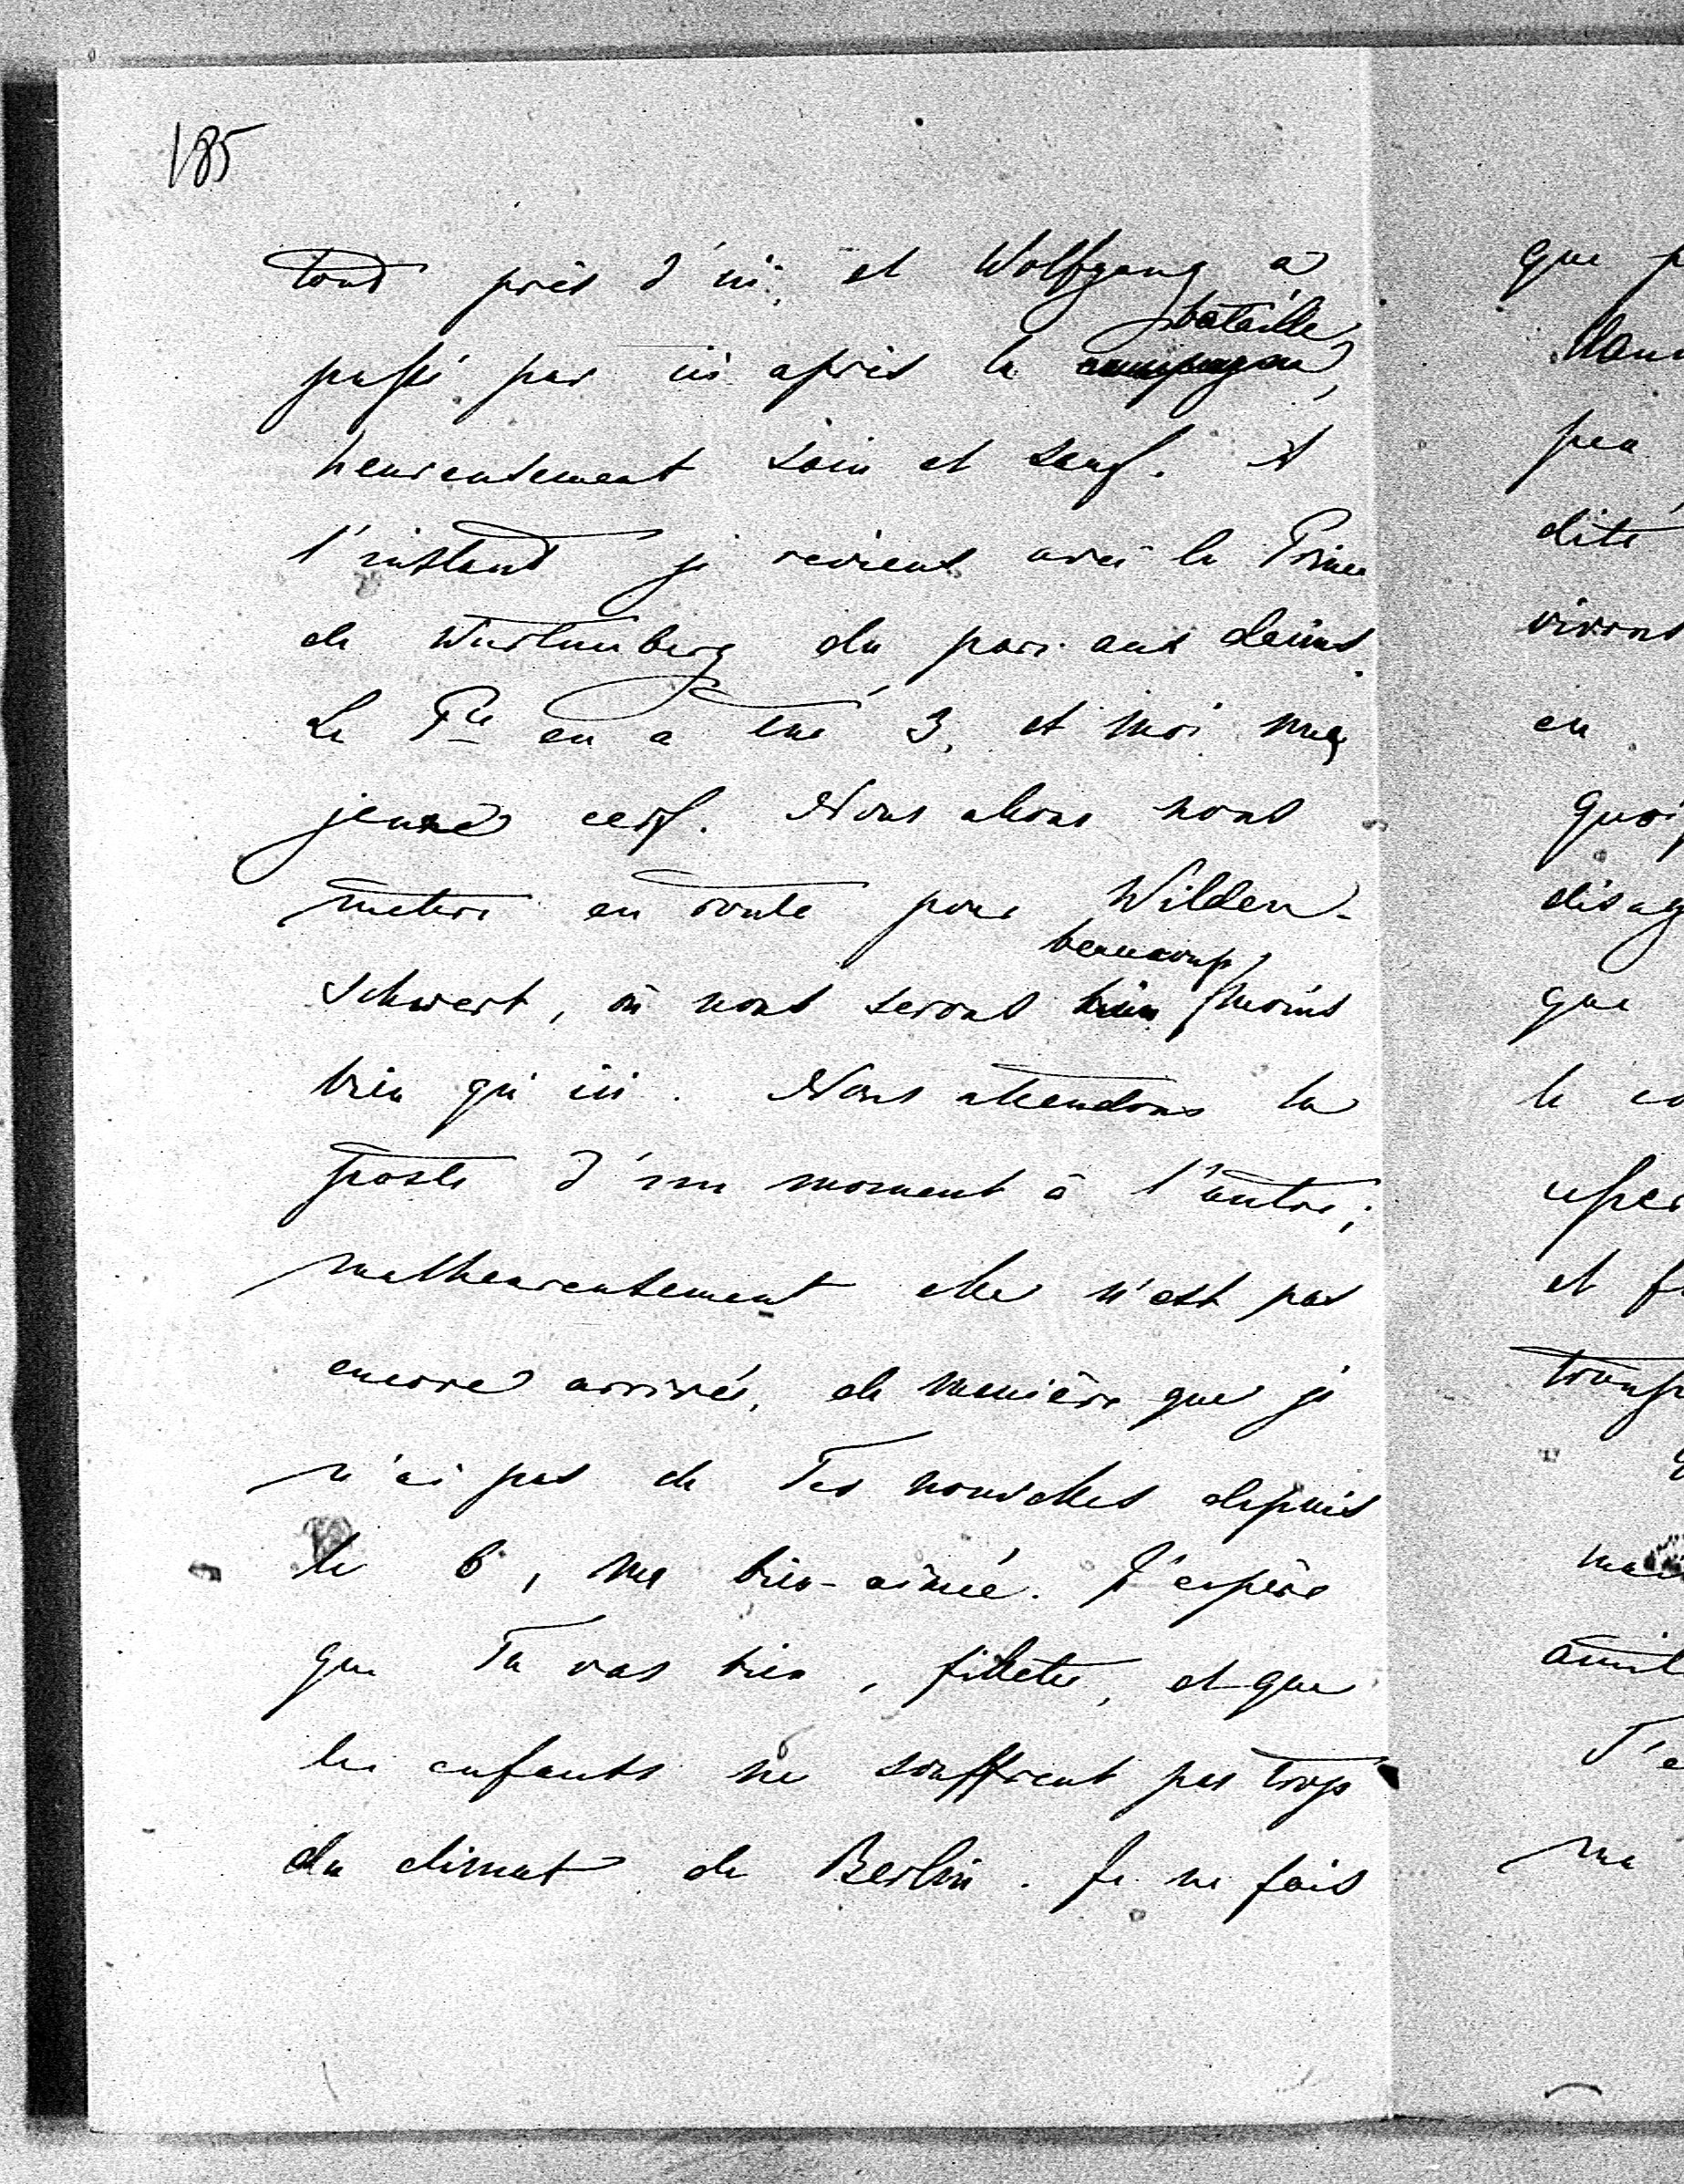 185
tout près d'ici, et Wolfgang a
bataille
passé par ici après la campagne,
heureusement sain et sauf. A
l'instant je reviens avec le Prince
de Wurtemberg du parc aux daims.
Le Pce en a tué 3, et moi un
jeune cerf. Nous allons nous
mettre en route pour Wilden-
beaucoup
schwert, où nous serons bien moins
bien qu'ici. Nous attendons la
poste d'un moment à l'autre;
malheureusement elle n'est pas
encore arrivée, de manière que je
n'ai pas de Tes nouvelles depuis
le 6, ma bien-aimée. J'espère
que Tu vas bien, fillette, et que
les enfants ne souffrent pas trop
du climat de Berlin. Je ne fais
que
peu
dité
vivons
en
quoi
disag
que
le co
et f
transp
ma